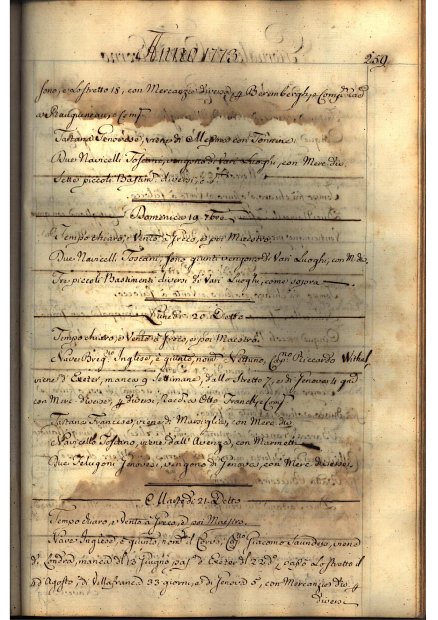 Anno 1773
259
sono, e lo stretto 18, con Mercanzie diverse, p Berembergh, e Comp
Tartana Genovese, viene di con
Due Navicelli Toscani, vengono di Vari Luoghi, con Merc. div.
Sette piccoli Bastim. diversi, e
Domenica 19. 7bre
Tempo chiaro, e Vento à Greco, e poi Maestro
Due Navicelli Toscani, sono giunti vengono di Vari Luoghi, con M. div.
Tre piccoli Bastimenti diversi di Vari Luoghi, come sopra
Lunedì 20. Detto
Tempo chiaro, e Vento à Greco, e poi Maestro.
Nave Brig.no Inglese, è giunto, nom.o Nettuno, Cap.no Riccardo
viene d'Exeter, manca 9 Settimane, dallo Stretto 7, e di Genova 4 gni
con Merc. diverse, p diversi, Racc.o Otto Franck, e Comp.
Tartana Francese, viene di Marsiglia, con Merc. div.
Navicello Toscano, viene dall' Avenza, con Marmoti
Due Felugoni Genovesi, vengono di Genova, con Merc. diverse.
Martedì 21. Detto
Tempo chiaro, e Vento à Greco, e poi Maestro
Nave Inglese, è giunto, nom.o il Corvo, Cap.no Giacomo Saunders, viene
di Londra, manca del 13 Giugno, pas. d'Exeter il 22 d.o, passò lo stretto il
Agosto, di Villafranca 33 giorni, e di Genova 5, con Mercanzie div. p
diversi